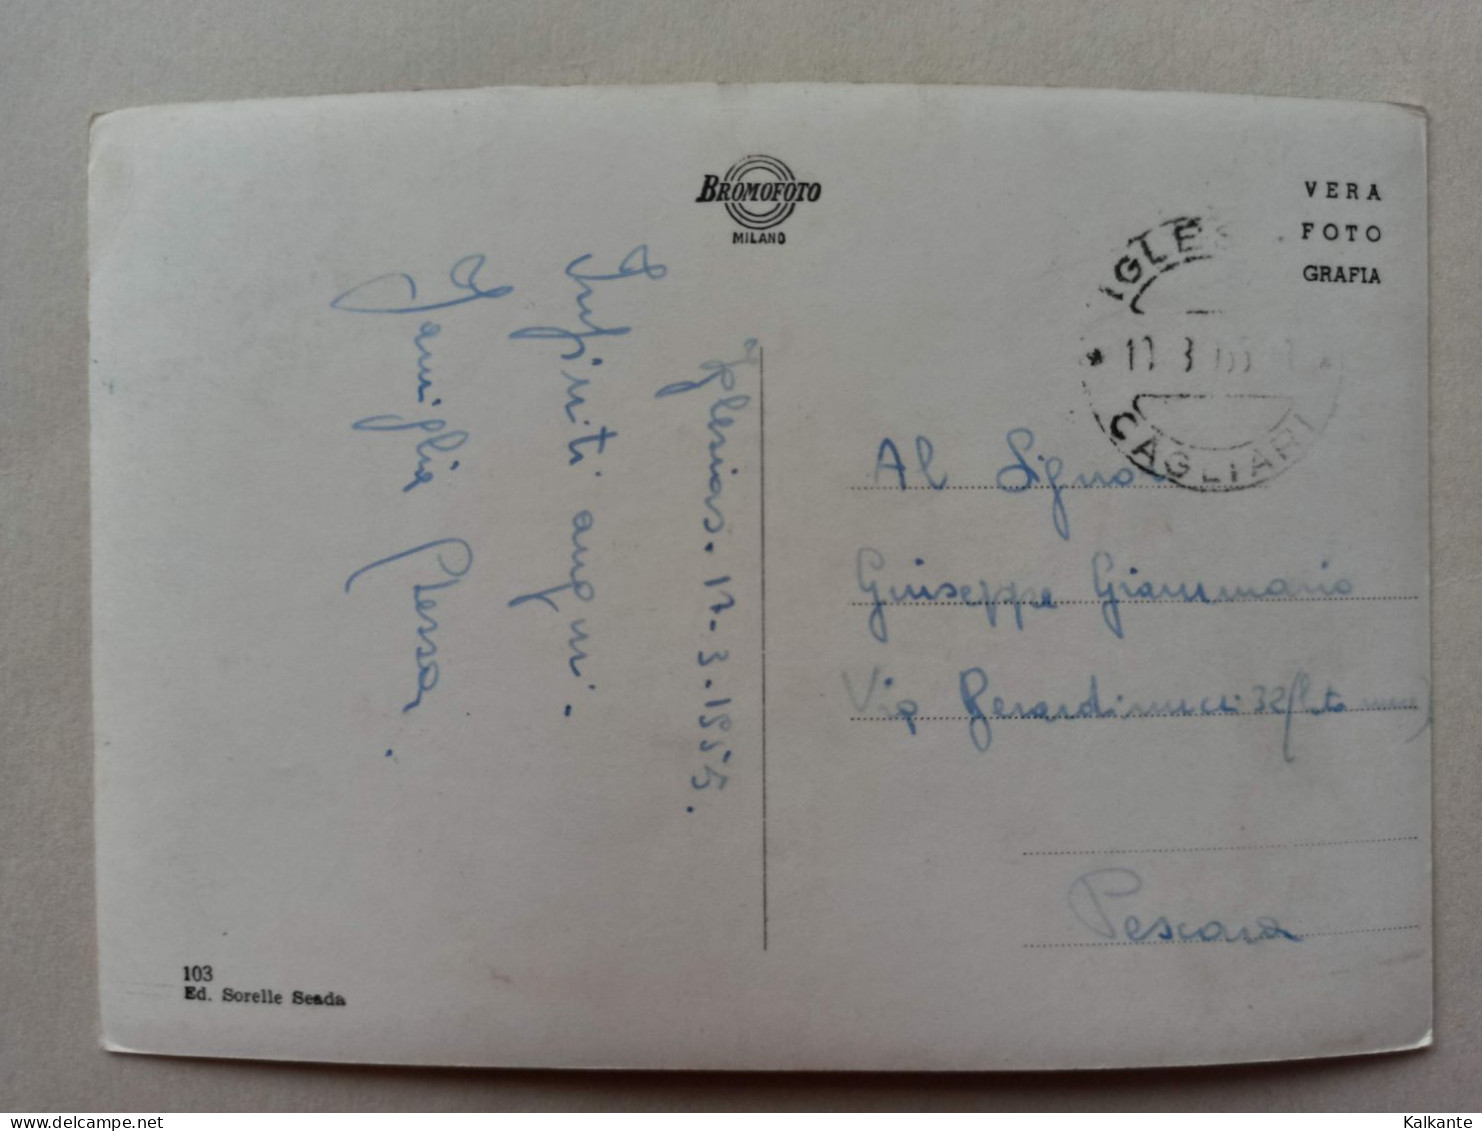 BROMOFOTO
MILANO
VERA
FOTO
GRAFIA
IGLES
11 3
CAGLIARI
Iglesias. 17.3.1955.
Infiniti auguri.
Famiglia
Al Signor
Giuseppe Giammario
Via 32
Pescara
103
Ed. Sorelle Seada
Kalkante